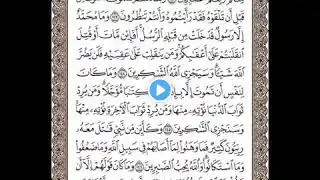 قَبْلِ أَن تَلْقَوْهُ فَقَدْ رَأَيْتُمُوهُ وَأَنتُمْ تَنظُرُونَ وَمَا مُحَمَّدٌ
إِلَّا رَسُولٌ قَدْ خَلَتْ مِن قَبْلِهِ ٱلرُّسُلُ أَفَإِيْن مَّاتَ أَوْ قُتِلَ
ٱنقَلَبْتُمْ عَلَىٰٓ أَعْقَٰبِكُمْ وَمَن يَنقَلِبْ عَلَىٰ عَقِبَيْهِ فَلَن يَضُرَّ
ٱللَّهَ شَيْـًٔا وَسَيَجْزِى ٱللَّهُ ٱلشَّٰكِرِينَ وَمَا كَانَ
لِنَفْسٍ أَن تَمُوتَ إِلَّا كِتَٰبًا مُّؤَجَّلًا وَمَن يُرِدْ
ثَوَابَ ٱلدُّنْيَا نُؤْتِهِۦ مِنْهَا وَمَن يُرِدْ ثَوَابَ ٱلْـَٔاخِرَةِ نُؤْتِهِۦ مِنْهَا
وَسَنَجْزِى ٱلشَّٰكِرِينَ وَكَأَيِّن مِّن نَّبِىٍّ قَٰتَلَ مَعَهُۥ
رِبِّيُّونَ كَثِيرٌ فَمَا وَهَنُوا۟ لِمَآ أَصَابَهُمْ فِى سَبِيلِ ٱللَّهِ وَمَا ضَعُفُوا۟
وَمَا ٱسْتَكَانُوا۟ وَٱللَّهُ يُحِبُّ ٱلصَّٰبِرِينَ وَمَا كَانَ قَوْلَهُمْ إِلَّآ أَن